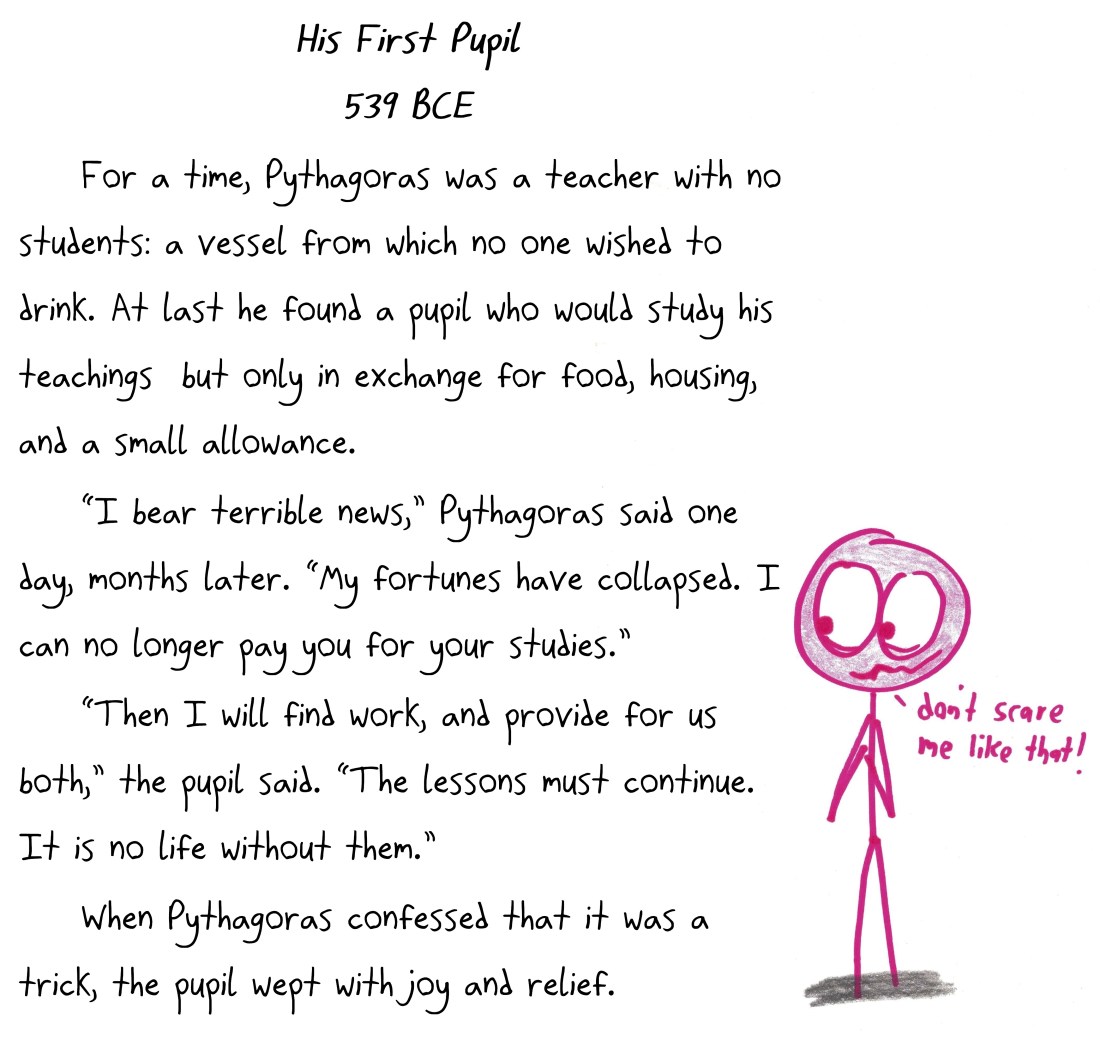 His First Pupil
539 BCE
For a time, Pythagoras was a teacher with no
students: a vessel from which no one wished to
drink. At last he found a pupil who would study his
teachings but only in exchange for food, housing,
and a small allowance.
“I bear terrible news,” Pythagoras said one
day, months later. “My fortunes have collapsed. I
can no longer pay you for your studies.”
“Then I will find work, and provide for us
both,” the pupil said. “The lessons must continue.
It is no life without them.”
When Pythagoras confessed that it was a
trick, the pupil wept with joy and relief.
don't scare
me like that!